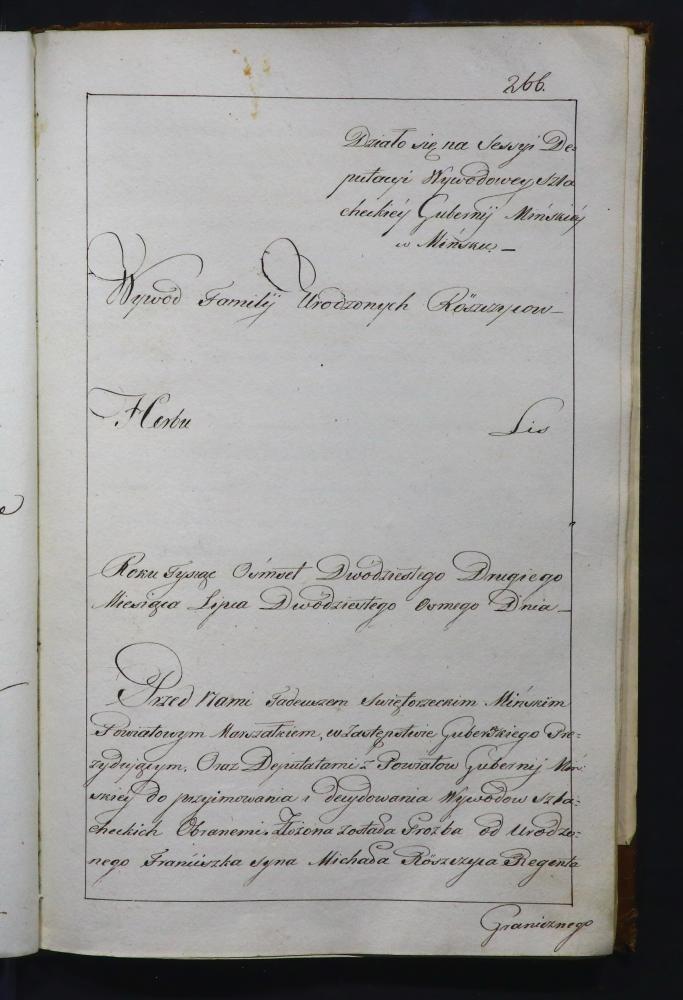 266.
Działo się na Sessyi De=
putacyi Wywodowey Szla
checkiéy Gubernij Mińskiéy
w Mińsku. —
Wywód Familij Urodzonych Rószczycow —
Herbu Lis
Roku Tysiąc Ośmset Dwódziestego Drugiego
Miesiąca Lipca Dwódziestego Osmego Dnia —
Przed Nami Tadeuszem Swiętorzeckim Mińskim
Powiatowym Marszałkiem, w Zastępstwie Guberskiego Pre=
zydującym, Oraz Deputatami z Powiatow Gubernij Miń=
skiéy do przyjmowania i decydowania Wywodow Szla=
checkich Obranemi, Złożona została Proźba od Urodzo=
nego Franciszka syna Michała Rószczyca Regenta
Granicznego